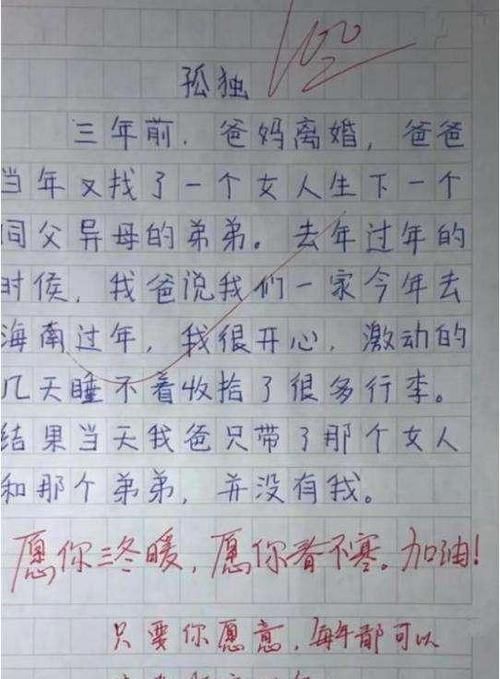 100
孤独
三年前，爸妈离婚，爸爸
当年又找了一个女人生下一个
同父异母的弟弟。去年过年的
时候，我爸说我们一家今年去
海南过年，我很开心，激动的
几天睡不着收拾了很多行李。
结果当天我爸只带了那个女人
和那个弟弟，并没有我。
愿你三冬暖，愿你春不寒。加油！
只要你愿意，每年都可以